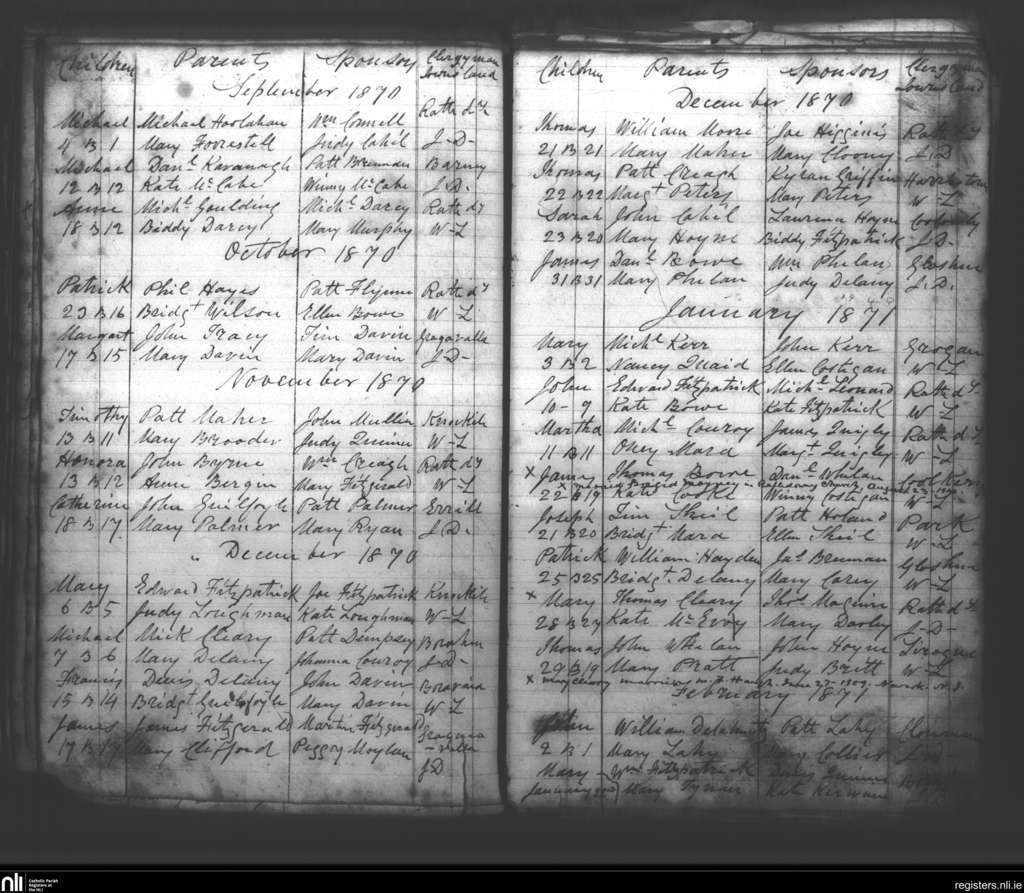 Children Parents Sponsors Clergyman
Townsland
September 1870
Michael Michael Hoolahan Wm Connell Rath dy
4 B 1 Mary Forrestell Judy Cahil J-D-
Michael Danl Kavanagh Patt Brennan Barney
12 B 12 Kate McCabe Winny McCabe J.D.
Anne Michl Goulding Michl Darcy Rath dy
18 B 12 Biddy Darcy Mary Murphy W-L
October 1870
Patrick Phil Hayes Patt Flynne Rath dy
23 B 16 Bridgt Wilson Ellen Bowe W-L
Margart John Tracy Tim Davin Gragavalla
17 B 15 Mary Davin Mary Davin J-D-
November 1870
Timothy Patt Maher John Mullin Knockih
13 B 11 Mary Brooder Judy Quinn W-L
Honora John Byrne Wm Creagh Rath dy
13 B 12 Anne Bergin Mary Fitzgirald W-L
Catherine John Guilfoyle Patt Palmer Errill
18 B 17. Mary Palmer Mary Ryan J.D.
" December 1870
Mary Edward Fitzpatrick Joe Fitzpatrick Knockih
6 B 5 Judy Loughman Kate Loughman W-L
Michael Mick Cleary Patt Dempsey
7 B 6 Mary Delany Johanna Conroy J-D-
Francis Denis Delany John Davin
15 B 14 Bridgt Guilfoyle Mary Davin W L
James James Fitzgerald Martin Fitzgerald
17 B 17 Mary Clifford Peggy Moylan
J D
Children Parents Sponsors Clergyman
Townsland
December 1870
Thomas William Moore Joe Higgins Rath dy
21 B 21 Mary Maher Mary Clooney J.D
Thomas Patt Creagh Kyran Griffin
22 B 22 Margt Peters Mary Peters W-L
Sarah John Cahil Laurence Hoyne
23 B 20 Mary Hoyne Biddy Fitzpatrick J.D-
James Danl Bowe Wm Phelan Gloshne
31 B 31 Mary Phelan Judy Delany J.D.
January 1871
Mary Michl Kerr John Kerr Grogan
3 B 2 Nancy Quaid Ellen Costigan W-L
John Edward Fitzpatrick Michl Leonard Rath dy
10 - 9 Kate Bowe Kate Fitzpatrick W-L
Martha Michl Conroy James Quigley Rath dy
11 B 11 Mara Margt Quigley W-L
x James Thomas Bowe Danl Whelan
x married
22 B 19 Kate Cooke Winny Costigan W-L
Joseph Tim Sheil Patt Holand Park
21 B 20 Bridgt Mara Ellen Sheil W-L
Patrick William Hayden Jas Brennan Gloshne
25 B 25 Bridgt Delany Mary Carey W-L
x Mary Thomas Cleary Thos Maguire Rath dy
28 B 27 Kate McEvoy Mary Darby J-D-
Thomas John Whelan John Hoyne
29 B 19 Mary Pratt Judy Britt W-L
x Mary Cleary married
February 1871
William Patt Lahy
2 B 1 Mary Lahy Collier
Mary Wm Fitzpatrick
January Mary Tynan Kate Kirwan
nli Catholic Parish
Registers at
the NLI
registers.nli.ie